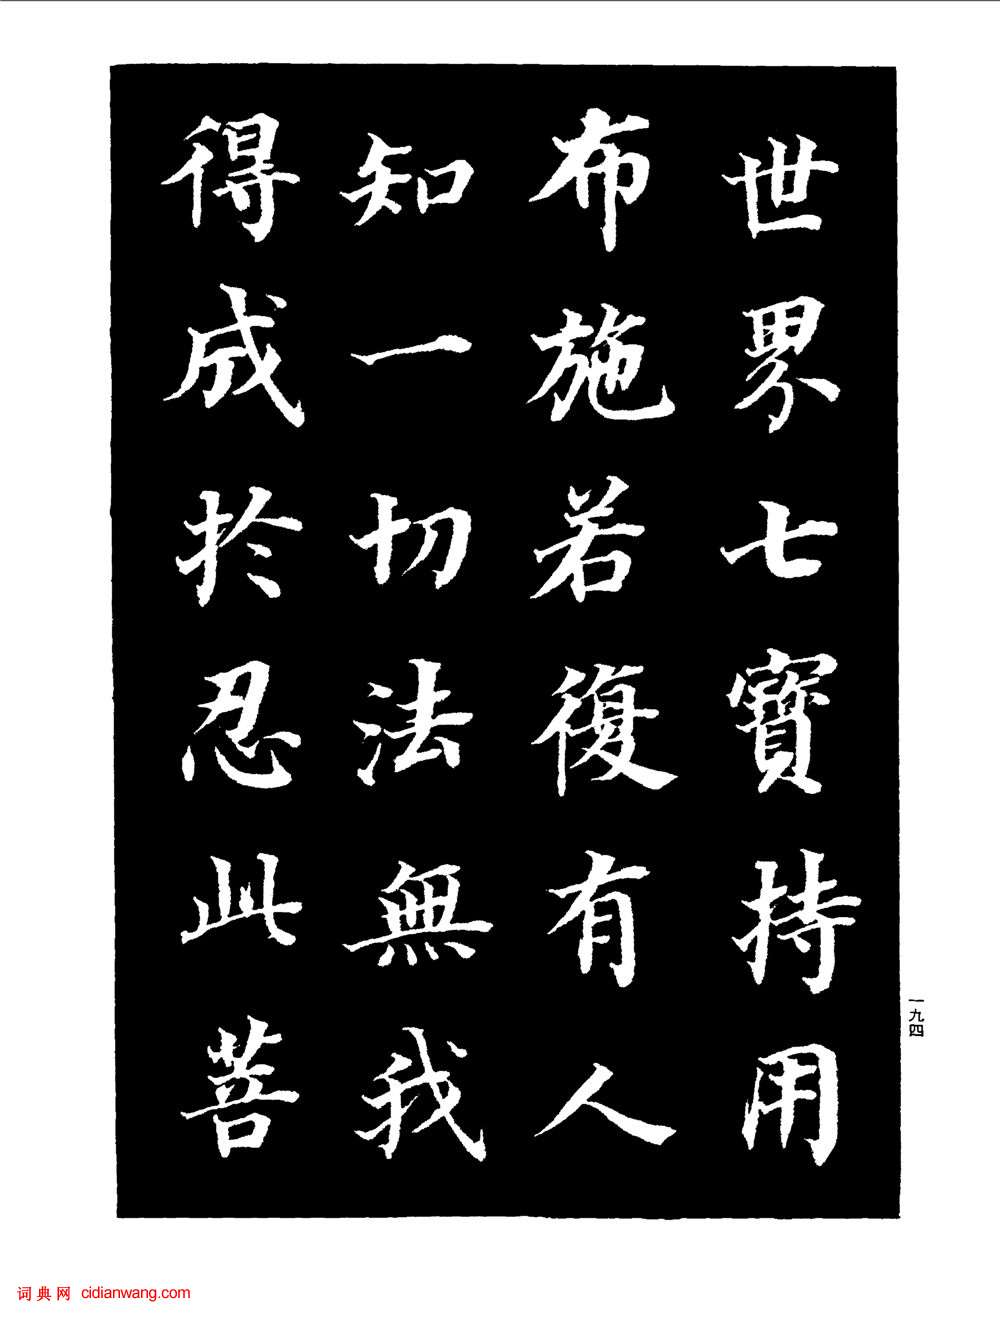 世界七寶持用
布施若復有人
知一切法無我
得成於忍此菩
一九四
词典网 cidianwang.com